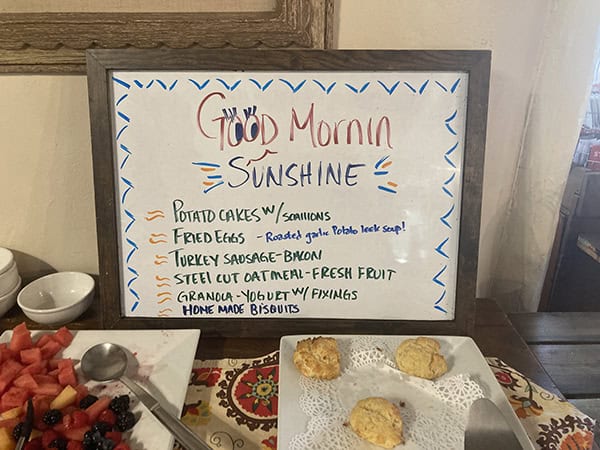 Good Mornin
SUNSHINE
POTATO CAKES W/ SCALLIONS
FRIED EGGS - Roasted garlic Potato leek soup!
TURKEY SAUSAGE-BACON
STEEL CUT OATMEAL-FRESH FRUIT
GRANOLA-YOGURT W/ FIXINGS
HOME MADE BISQUITS